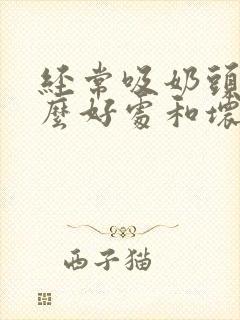 经常吸奶頭
麽好處和壞
西子猫